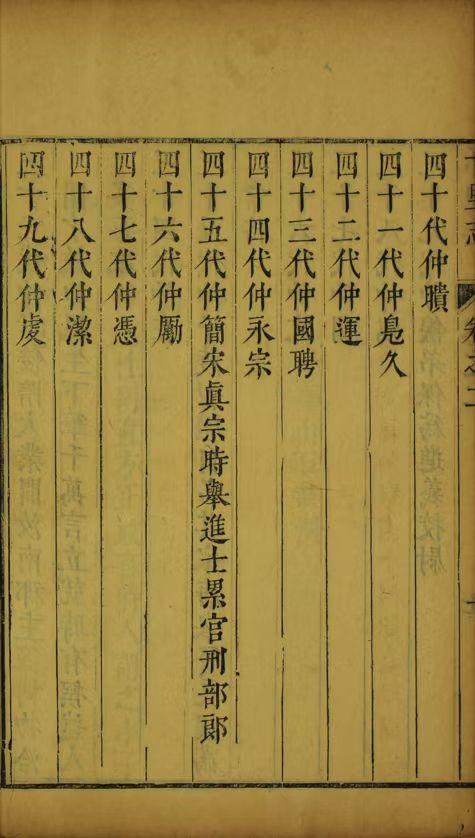 志 卷之二
四十代仲瞔
四十一代仲鳬久
四十二代仲運
四十三代仲國聘
四十四代仲永宗
四十五代仲簡宋眞宗時舉進士累官刑部郎
四十六代仲勵
四十七代仲憑
四十八代仲潔
四十九代仲虔